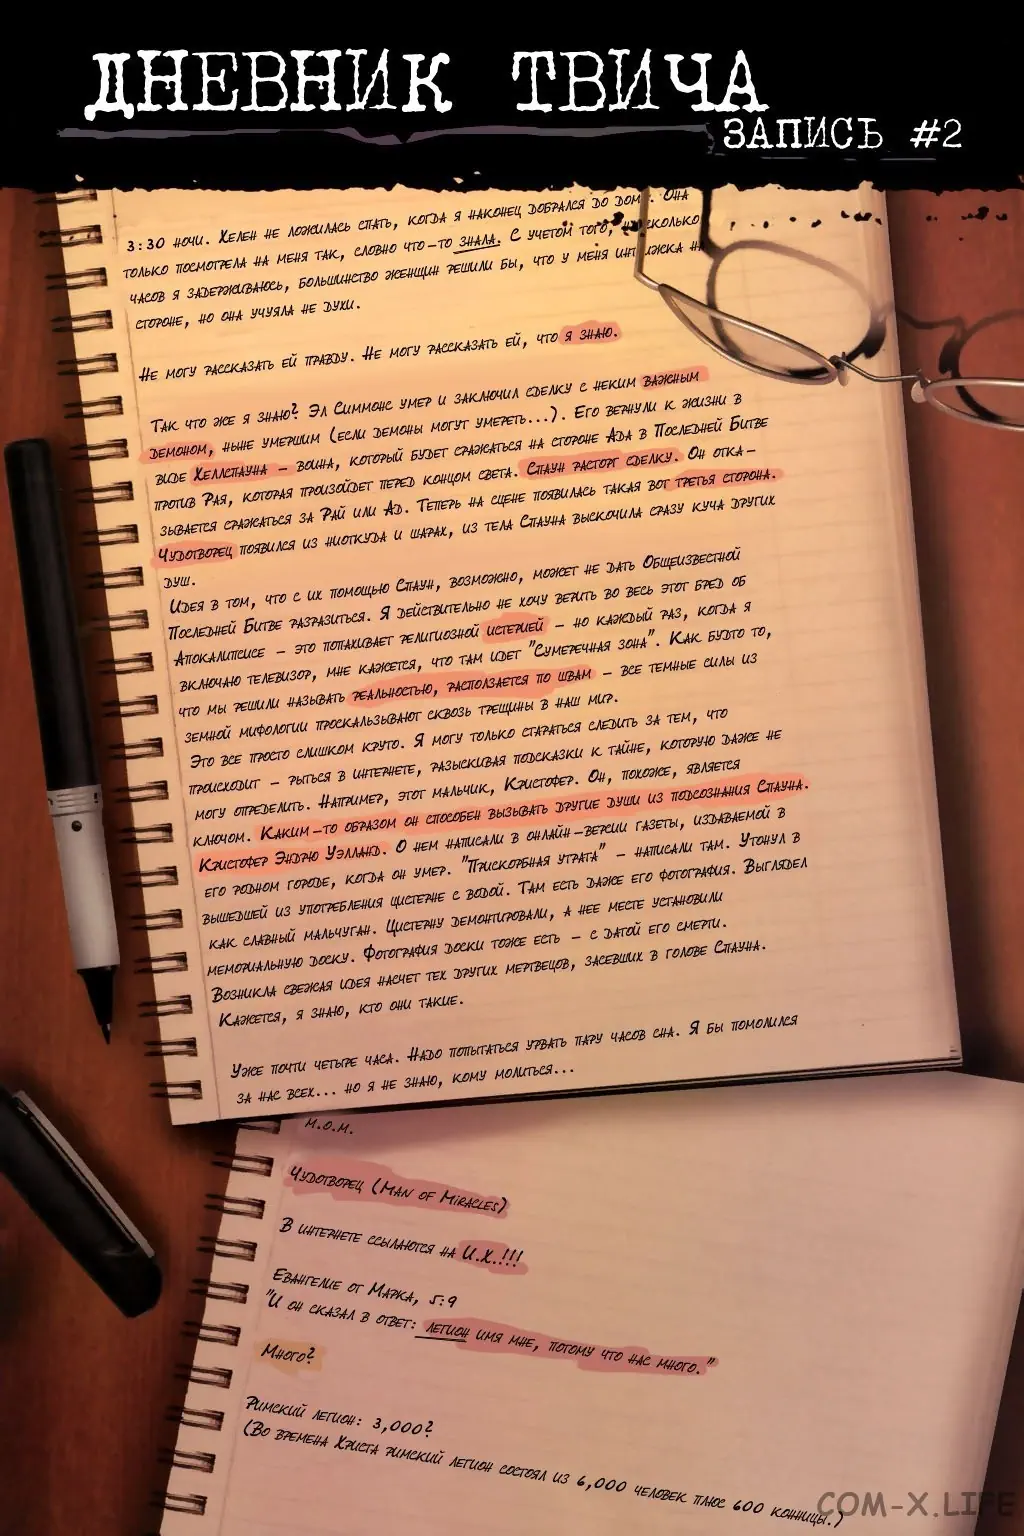 ДНЕВНИК ТВИЧА
ЗАПИСЬ #2
3:30 НОЧИ. ХЕЛЕН НЕ ЛОЖИЛАСЬ СПАТЬ, КОГДА Я НАКОНЕЦ ДОБРАЛСЯ ДО ДОМ. ОНА
ТОЛЬКО ПОСМОТРЕЛА НА МЕНЯ ТАК, СЛОВНО ЧТО-ТО ЗНАЛА. С УЧЕТОМ ТОГО, НАСКОЛЬКО
ЧАСОВ Я ЗАДЕРЖИВАЮСЬ, БОЛЬШИНСТВО ЖЕНЩИН РЕШИЛИ БЫ, ЧТО У МЕНЯ ИНТРИЖКА НА
СТОРОНЕ, НО ОНА УЧУЯЛА НЕ ДУХИ.
НЕ МОГУ РАССКАЗАТЬ ЕЙ ПРАВДУ. НЕ МОГУ РАССКАЗАТЬ ЕЙ, ЧТО Я ЗНАЮ.
ТАК ЧТО ЖЕ Я ЗНАЮ? ЭЛ СИММОНС УМЕР И ЗАКЛЮЧИЛ СДЕЛКУ С НЕКИМ ВАЖНЫМ
ДЕМОНОМ, НЫНЕ УМЕРШИМ (ЕСЛИ ДЕМОНЫ МОГУТ УМЕРЕТЬ...). ЕГО ВЕРНУЛИ К ЖИЗНИ В
ВИДЕ ХЕЛЛСПАУНА - ВОИНА, КОТОРЫЙ БУДЕТ СРАЖАТЬСЯ НА СТОРОНЕ АДА В ПОСЛЕДНЕЙ БИТВЕ
ПРОТИВ РАЯ, КОТОРАЯ ПРОИЗОЙДЕТ ПЕРЕД КОНЦОМ СВЕТА. СПАУН РАСТОРГ СДЕЛКУ. ОН ОТКА-
ЗЫВАЕТСЯ СРАЖАТЬСЯ ЗА РАЙ ИЛИ АД. ТЕПЕРЬ НА СЦЕНЕ ПОЯВИЛАСЬ ТАКАЯ ВОТ ТРЕТЬЯ СТОРОНА.
ЧУДОТВОРЕЦ ПОЯВИЛСЯ ИЗ НИОТКУДА И ШАРАХ, ИЗ ТЕЛА СПАУНА ВЫСКОЧИЛА СРАЗУ КУЧА ДРУГИХ
ДУШ.
ИДЕЯ В ТОМ, ЧТО С ИХ ПОМОЩЬЮ СПАУН, ВОЗМОЖНО, МОЖЕТ НЕ ДАТЬ ОБЩЕИЗВЕСТНОЙ
ПОСЛЕДНЕЙ БИТВЕ РАЗРАЗИТЬСЯ. Я ДЕЙСТВИТЕЛЬНО НЕ ХОЧУ ВЕРИТЬ ВО ВЕСЬ ЭТОТ БРЕД ОБ
АПОКАЛИПСИСЕ - ЭТО ПОПАХИВАЕТ РЕЛИГИОЗНОЙ ИСТЕРИЕЙ - НО КАЖДЫЙ РАЗ, КОГДА Я
ВКЛЮЧАЮ ТЕЛЕВИЗОР, МНЕ КАЖЕТСЯ, ЧТО ТАМ ИДЕТ "СУМЕРЕЧНАЯ ЗОНА". КАК БУДТО ТО,
ЧТО МЫ РЕШИЛИ НАЗЫВАТЬ РЕАЛЬНОСТЬЮ, РАСПОЛЗАЕТСЯ ПО ШВАМ - ВСЕ ТЕМНЫЕ СИЛЫ ИЗ
ЗЕМНОЙ МИФОЛОГИИ ПРОСКАЛЬЗЫВАЮТ СКВОЗЬ ТРЕЩИНЫ В НАШ МИР.
ЭТО ВСЕ ПРОСТО СЛИШКОМ КРУТО. Я МОГУ ТОЛЬКО СТАРАТЬСЯ СЛЕДИТЬ ЗА ТЕМ, ЧТО
ПРОИСХОДИТ - РЫТЬСЯ В ИНТЕРНЕТЕ, РАЗЫСКИВАЯ ПОДСКАЗКИ К ТАЙНЕ, КОТОРУЮ ДАЖЕ НЕ
МОГУ ОПРЕДЕЛИТЬ. НАПРИМЕР, ЭТОТ МАЛЬЧИК, КРИСТОФЕР. ОН, ПОХОЖЕ, ЯВЛЯЕТСЯ
КЛЮЧОМ. КАКИМ-ТО ОБРАЗОМ ОН СПОСОБЕН ВЫЗЫВАТЬ ДРУГИЕ ДУШИ ИЗ ПОДСОЗНАНИЯ СПАУНА.
КРИСТОФЕР ЭНДРЮ УЭЛЛАНД. О НЕМ НАПИСАЛИ В ОНЛАЙН-ВЕРСИИ ГАЗЕТЫ, ИЗДАВАЕМОЙ В
ЕГО РОДНОМ ГОРОДЕ, КОГДА ОН УМЕР. "ПРИСКОРБНАЯ УТРАТА" - НАПИСАЛИ ТАМ. УТОНУЛ В
ВЫШЕДШЕЙ ИЗ УПОТРЕБЛЕНИЯ ЦИСТЕРНЕ С ВОДОЙ. ТАМ ЕСТЬ ДАЖЕ ЕГО ФОТОГРАФИЯ. ВЫГЛЯДЕЛ
КАК СЛАВНЫЙ МАЛЬЧУГАН. ЦИСТЕРНУ ДЕМОНТИРОВАЛИ, А НЕЕ МЕСТЕ УСТАНОВИЛИ
МЕМОРИАЛЬНУЮ ДОСКУ. ФОТОГРАФИЯ ДОСКИ ТОЖЕ ЕСТЬ - С ДАТОЙ ЕГО СМЕРТИ.
ВОЗНИКЛА СВЕЖАЯ ИДЕЯ НАСЧЕТ ТЕХ ДРУГИХ МЕРТВЕЦОВ, ЗАСЕВШИХ В ГОЛОВЕ СПАУНА.
КАЖЕТСЯ, Я ЗНАЮ, КТО ОНИ ТАКИЕ.
УЖЕ ПОЧТИ ЧЕТЫРЕ ЧАСА. НАДО ПОПЫТАТЬСЯ УРВАТЬ ПАРУ ЧАСОВ СНА. Я БЫ ПОМОЛИЛСЯ
ЗА НАС ВСЕХ... НО Я НЕ ЗНАЮ, КОМУ МОЛИТЬСЯ...
М.О.М.
ЧУДОТВОРЕЦ (MAN OF MIRACLES)
В ИНТЕРНЕТЕ ССЫЛАЮТСЯ НА И.Х.!!!
ЕВАНГЕЛИЕ ОТ МАРКА, 5:9
"И ОН СКАЗАЛ В ОТВЕТ: ЛЕГИОН ИМЯ МНЕ, ПОТОМУ ЧТО НАС МНОГО."
МНОГО?
РИМСКИЙ ЛЕГИОН: 3,000?
(ВО ВРЕМЕНА ХРИСТА РИМСКИЙ ЛЕГИОН СОСТОЯЛ ИЗ 6,000 ЧЕЛОВЕК ПЛЮС 600 КОННИЦЫ.)
COM-X.LIFE